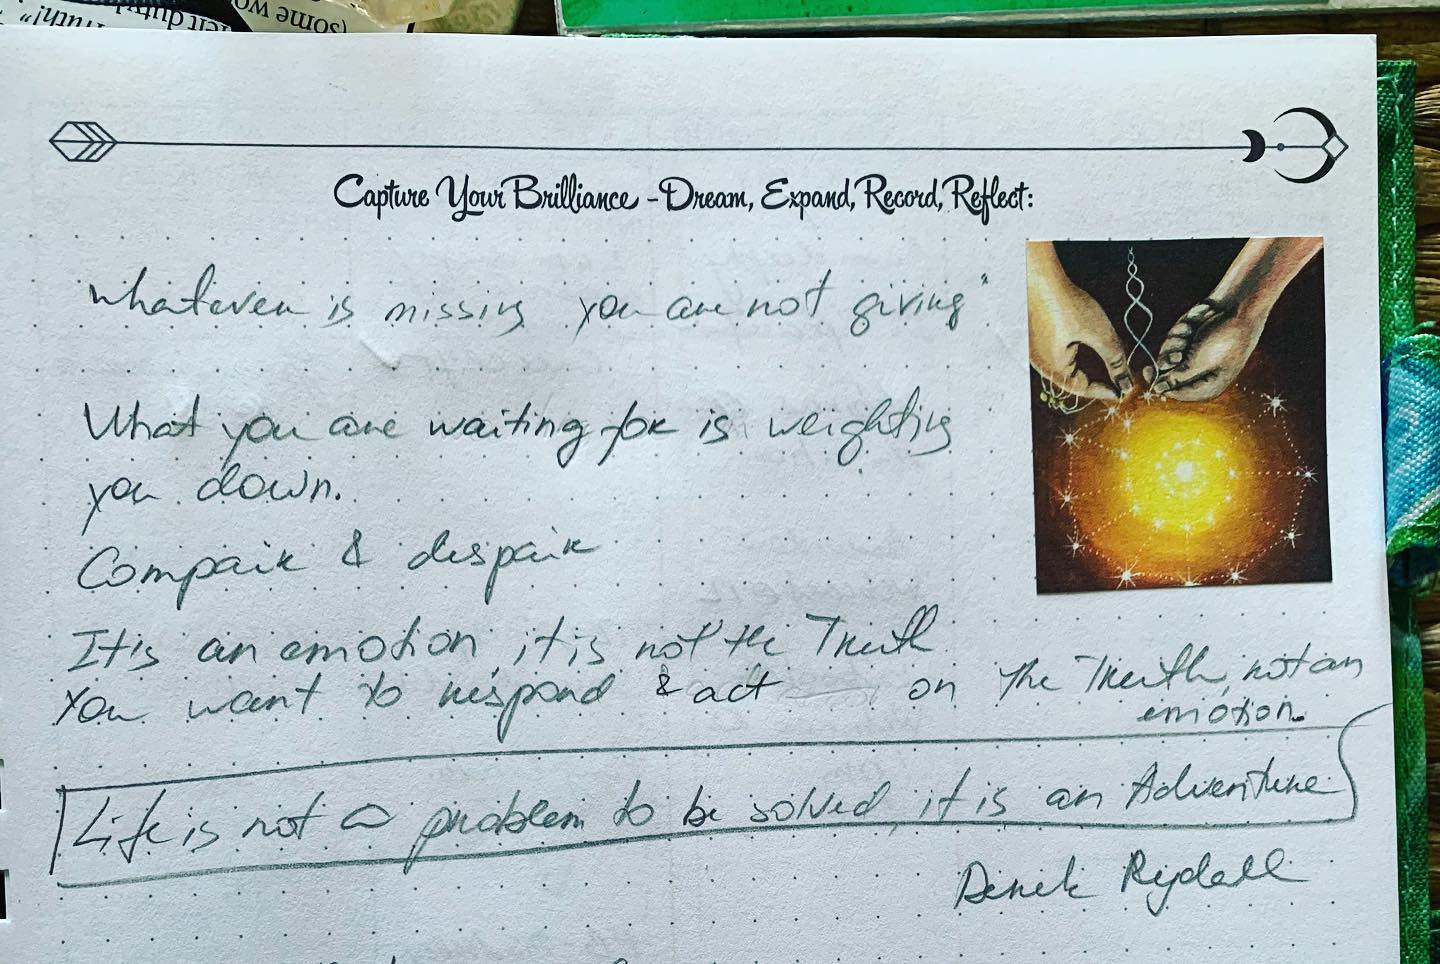 Capture Your Brilliance - Dream, Expand, Record, Reflect:
"whatever is missing you are not giving"
What you are waiting for is weighting
you down.
Compair & despair
It's an emotion, it is not the Truth
You want to respond & act on the Truth, not an
emotion.
Life is not a problem to be solved, it is an Adventure
Derek Rydall
(some wo